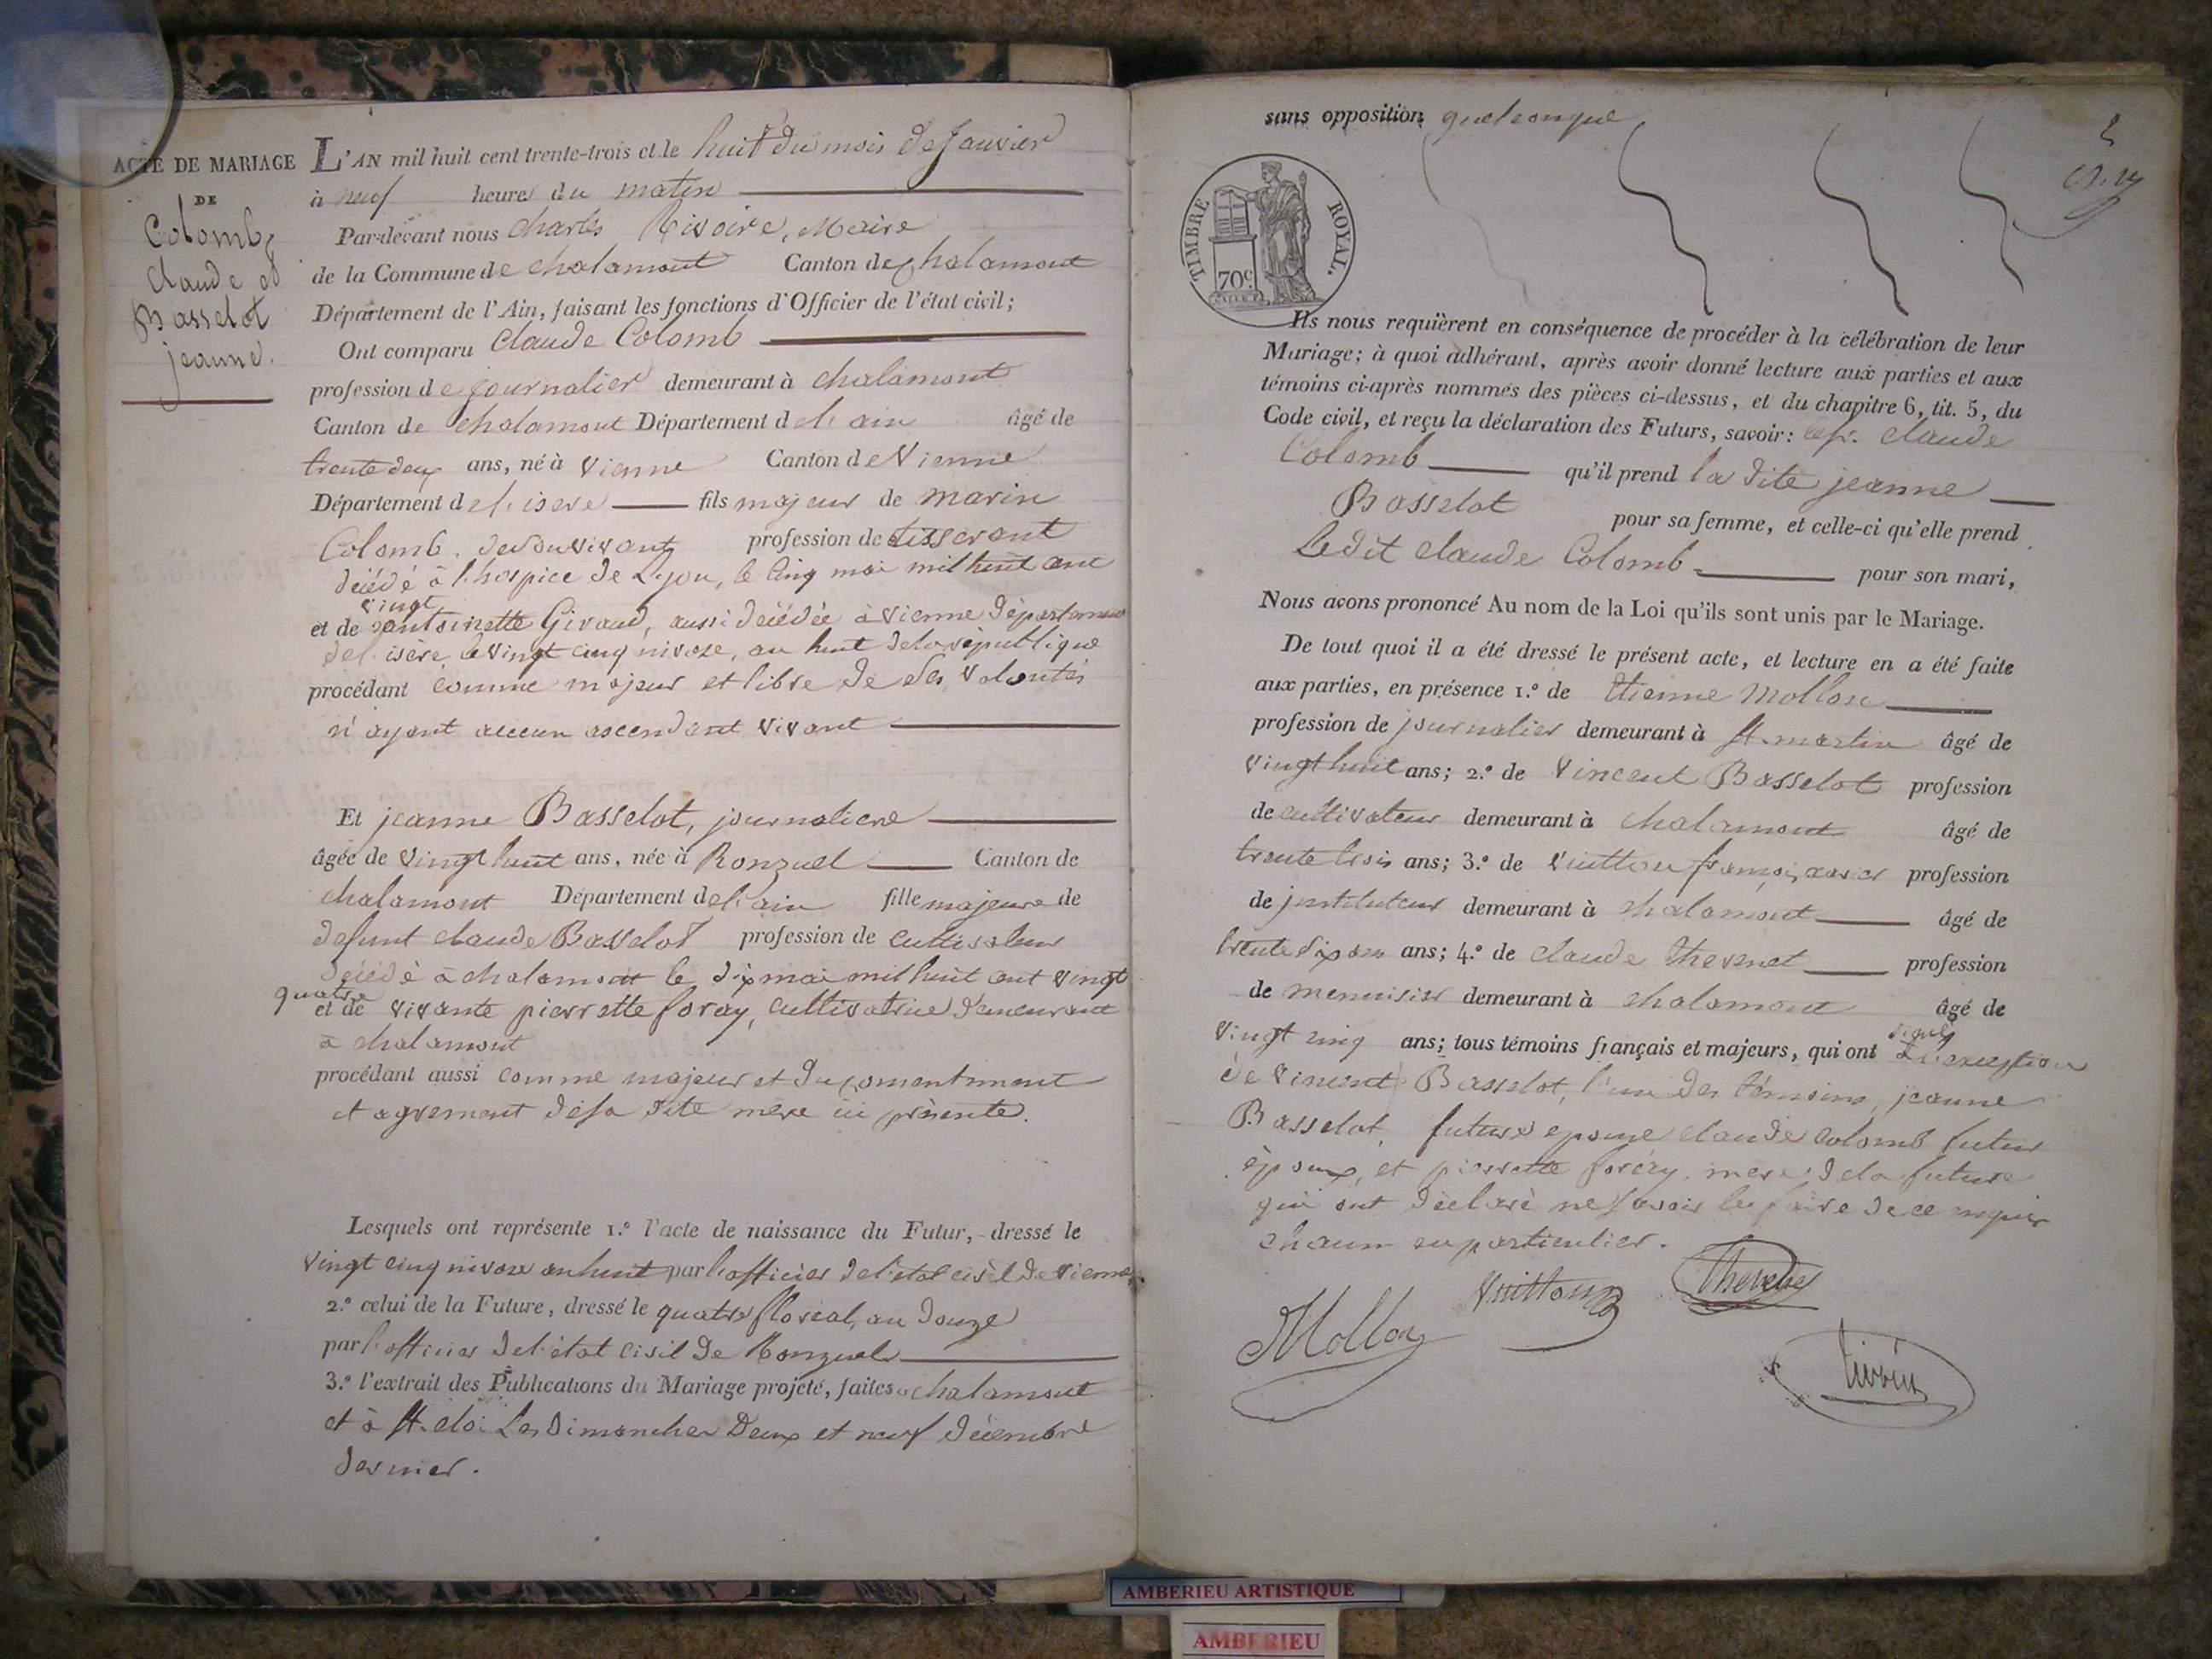 ACTE DE MARIAGE
DE
Colomb,
Claude et
Basselot
jeanne.
L'AN mil huit cent trente-trois et le huit du mois de Janvier
à neuf heures du matin
Par-devant nous Charles Rivoire, Maire
de la Commune de chalamont Canton de chalamont
Département de l'Ain, faisant les fonctions d'Officier de l'état civil;
Ont comparu Claude Colomb
profession de journalier demeurant à chalamont
Canton de chalamont Département de l'ain âgé de
trente deux ans, né à Vienne Canton de Vienne
Département de l'isere fils majeur de marin
Colomb, de son vivant profession de tisserant
décédé à l'hospice de Lyon, le cinq mai mil huit cent
vingt
et de antoinette Giraud, aussi décédée à Vienne département
de l'isère, le vingt cinq nivose, an huit de la république
procédant comme majeur et libre de ses volontés
n'ayant aucun ascendant vivant
Et jeanne Basselot, journaliere
âgée de vingt huit ans, née à Ronzuel Canton de
chalamont Département de l'ain fille majeure de
defunt claude Basselot profession de cultivateur
décédé à chalamont le dix mai mil huit cent vingt
quatre
et de vivante pierrette foray, cultivatrice demeurant
à chalamont
procédant aussi comme majeur et du consentement
et agrement de sa dite mère ici présente.
Lesquels ont représente 1.º l'acte de naissance du Futur, dressé le
vingt cinq nivose an huit par l'officier de l'état civil de Vienne,
2.º celui de la Future, dressé le quatre floreal, an douze
par l'officier de l'état civil de Ronzuel
3.º l'extrait des Publications du Mariage projeté, faites à chalamont
et à St. eloi Les dimanches Deux et neuf décembre
dernier.
sans opposition quelconque
2
TIMBRE ROYAL.
70c
Ils nous requièrent en conséquence de procéder à la célébration de leur
Mariage; à quoi adhérant, après avoir donné lecture aux parties et aux
témoins ci-après nommés des pièces ci-dessus, et du chapitre 6, tit. 5, du
Code civil, et reçu la déclaration des Futurs, savoir: claude
Colomb qu'il prend la dite jeanne
Basselot pour sa femme, et celle-ci qu'elle prend
Ledit claude Colomb pour son mari,
Nous avons prononcé Au nom de la Loi qu'ils sont unis par le Mariage.
De tout quoi il a été dressé le présent acte, et lecture en a été faite
aux parties, en présence 1.º de Etienne Mollon
profession de journalier demeurant à St. martin âgé de
vingt huit ans; 2.º de Vincent Basselot profession
de cultivateur demeurant à chalamont âgé de
trente trois ans; 3.º de Vuitton françois xavier profession
de jnstituteur demeurant à chalamont âgé de
trente ans; 4.º de claude Thevenet profession
de menuisier demeurant à chalamont âgé de
signé
vingt cinq ans; tous témoins français et majeurs, qui ont à l'exception
de Vincent Basselot, l'un des témoins, jeanne
Basselot, future epouse claude colomb futur
époux, et pierrette foray, mere de la future
qui ont déclaré ne savoir le faire de ce enquis
chacun en particulier.
Mollon
Vuitton
Thevenet
AMBERIEU ARTISTIQUE
AMBERIEU